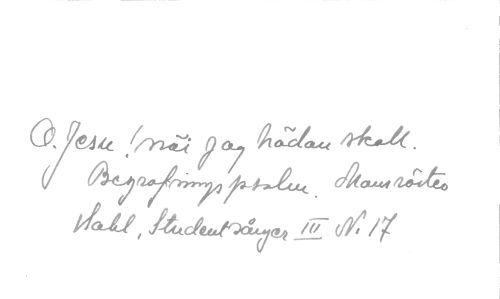 O. Jesu! när jag hädan skall.
Begrafningspsalm. Mansröster
Wahl, Studentsånger III N. 17